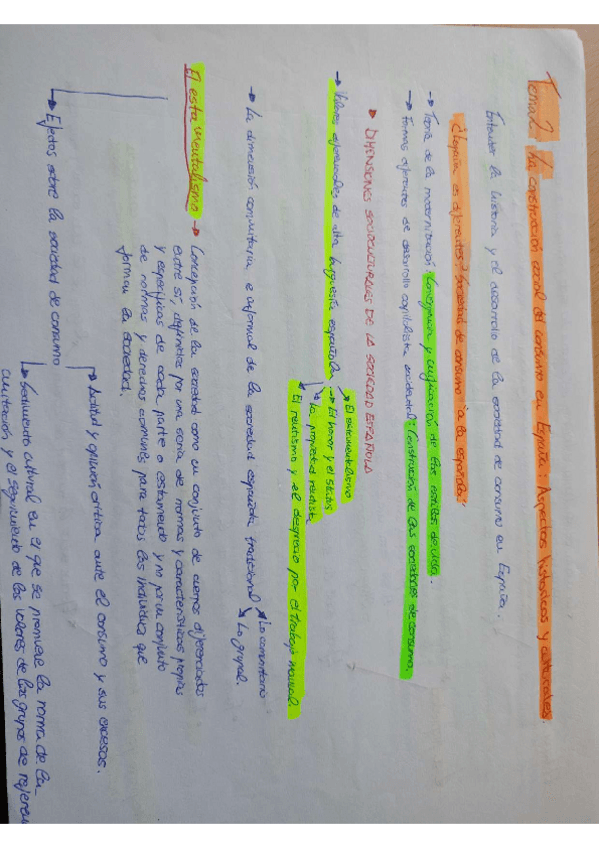 Tema 2. La construcción social del consumo en España: Aspectos históricos y culturales.
Entender la historia y el desarrollo de la sociedad de consumo en España.
¿España es diferente?: Sociedad de consumo "a la española"
→ Teoría de la modernización: Convergencia y unificación de los modos de vida.
→ Formas de desarrollo capitalista occidental: Construcción de las sociedades de consumo.
▸ DIMENSIONES SOCIOCULTURALES DE LA SOCIEDAD ESPAÑOLA
→ Valores de alta burguesía española
El estamentalismo
→ El honor y el status
La propiedad rentista
El rentismo y el desprecio por el trabajo manual.
→ La dimensión comunitaria e informal de la sociedad española tradicional
Lo comunitario
Lo grupal.
El estamentalismo → Concepción de la sociedad como un conjunto de cuerpos diferenciados
entre sí, definidos por una serie de normas y características propias
y específicas de cada parte o estamento y no por un conjunto
de normas y derechos comunes para todos los individuos que
forman la sociedad.
→ Efectos sobre la sociedad de consumo
Actitud y opinión crítica ante el consumo y sus excesos.
→ Seguimiento cultural en el que se promueve la norma de la
imitación y el seguimiento de los valores de los grupos de referen